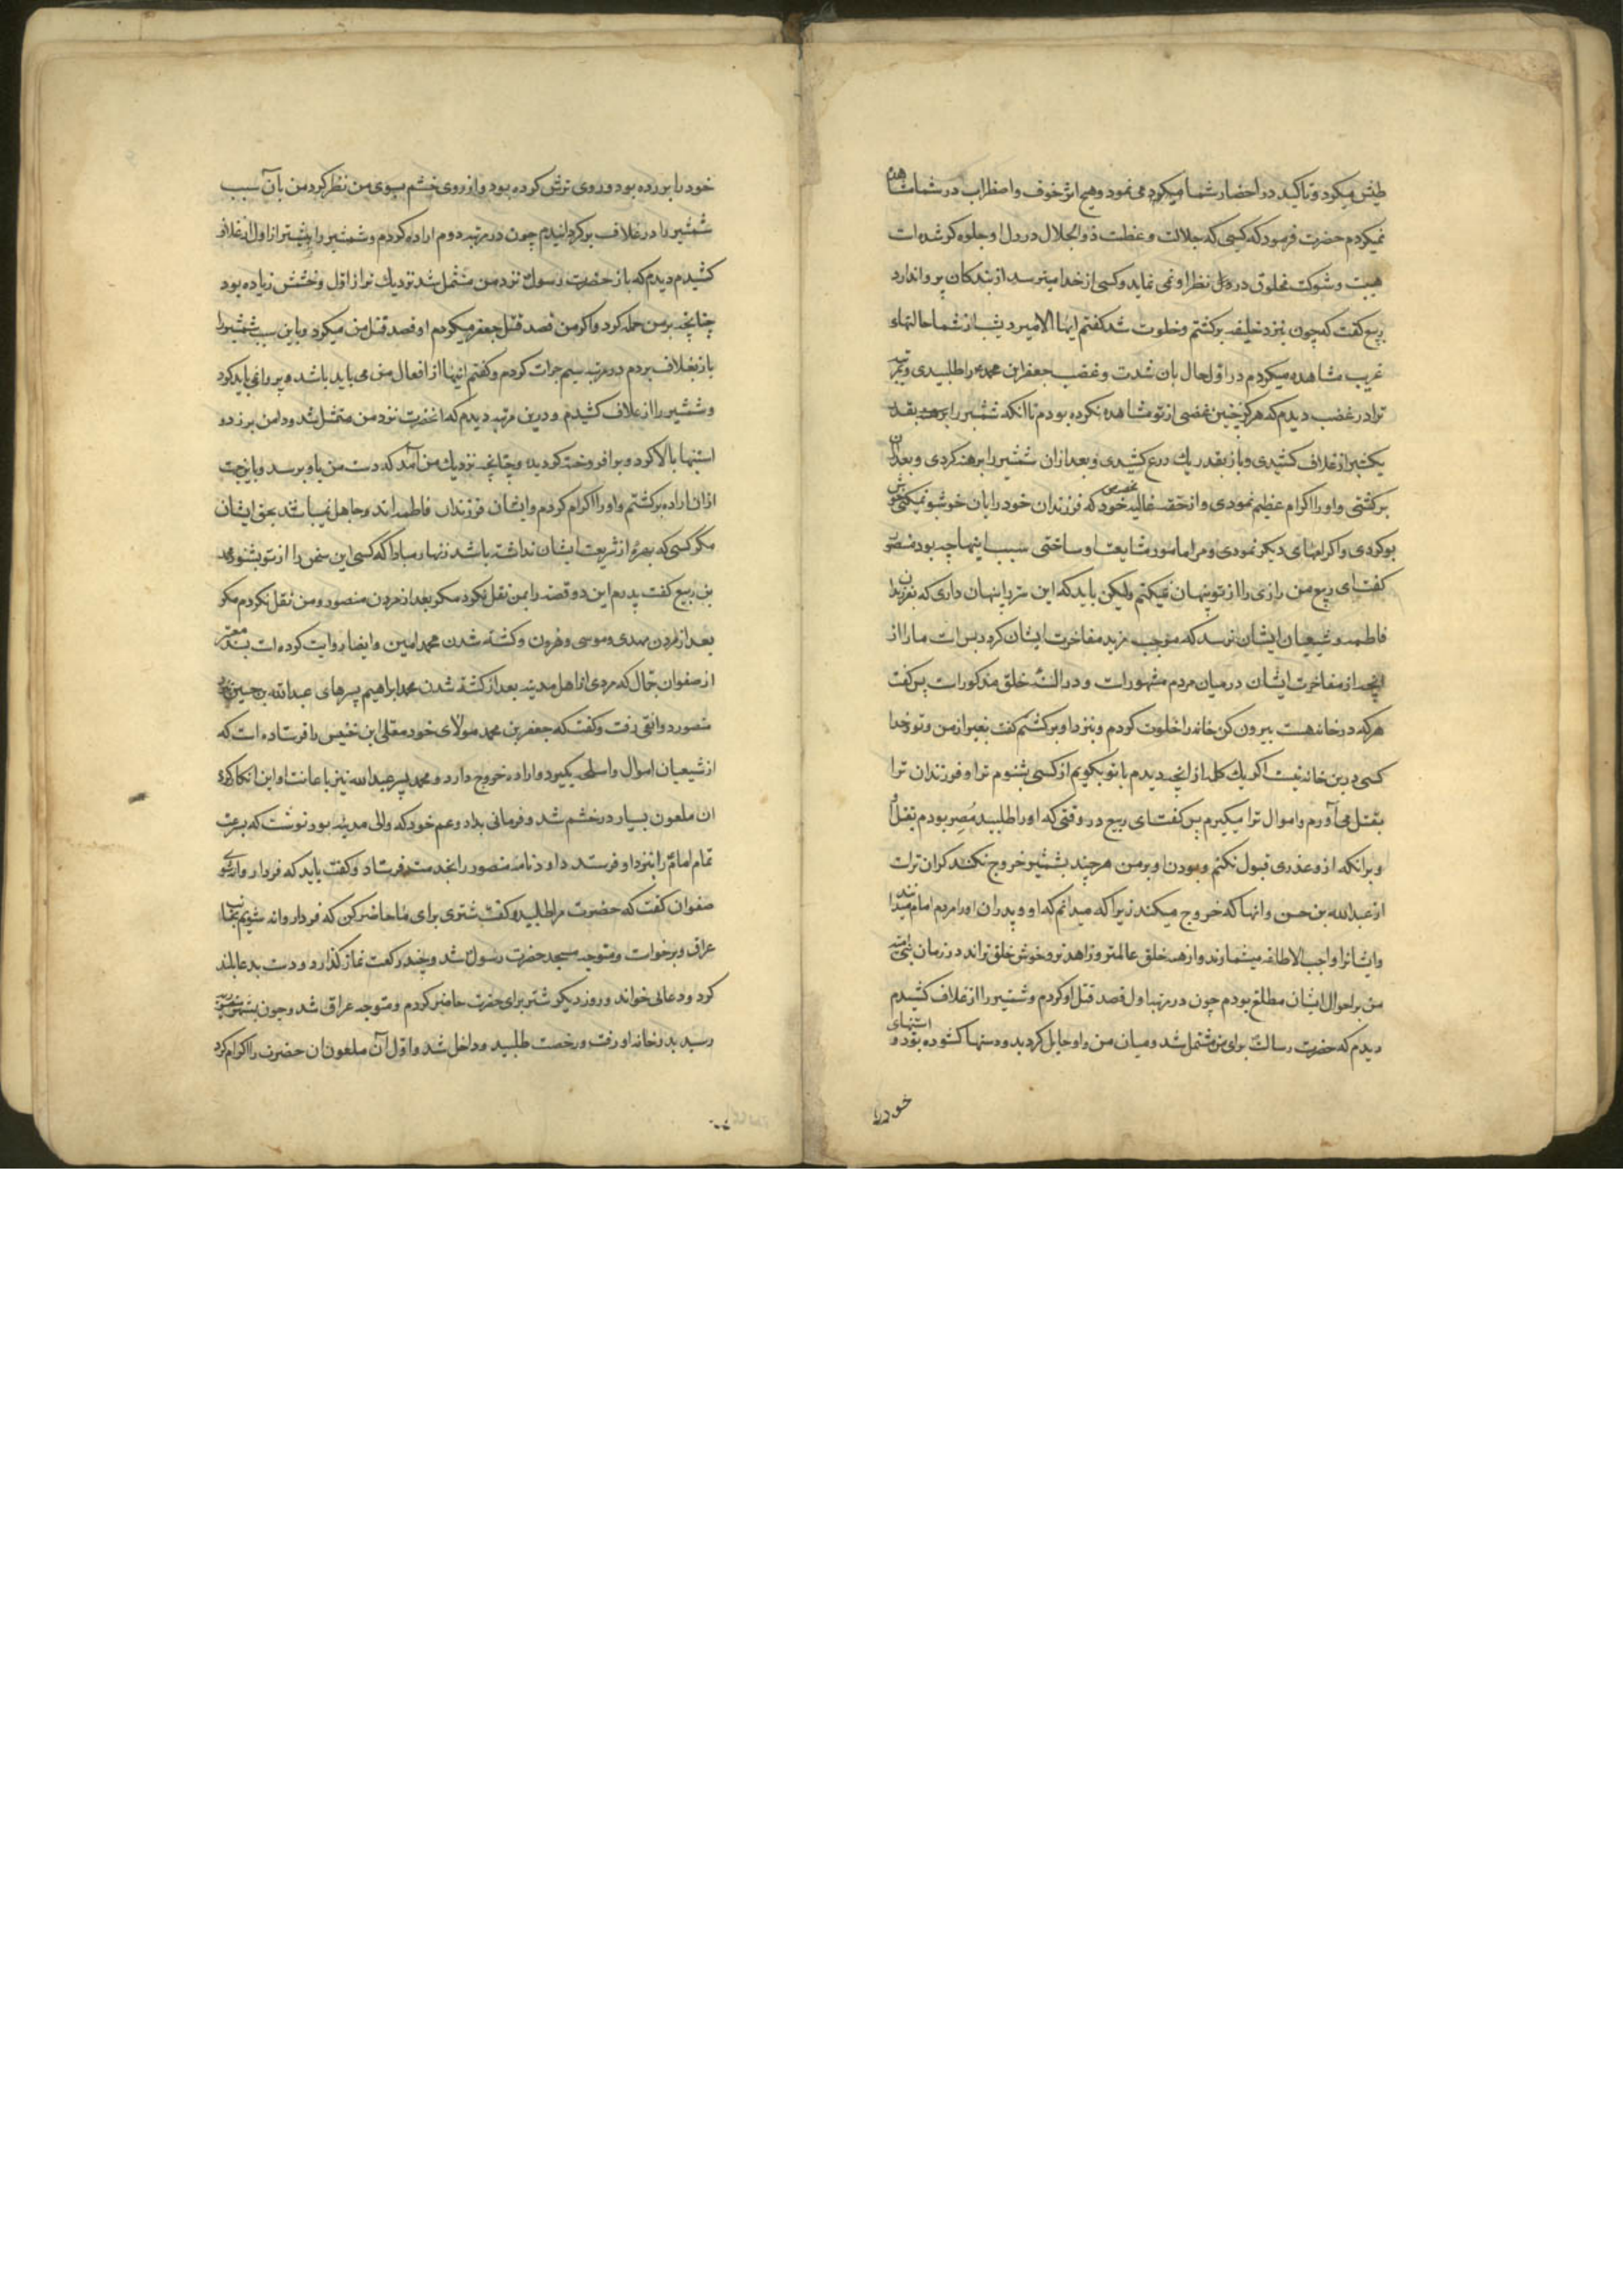 طیش میکرد و تاکید در احضار شما میکرد می نمود و هیچ اثر خوف و اضطراب در شما مشاهده
نمیکردم حضرت فرمود که کسی که جلالت و عظمت ذوالجلال در دل او جلوه کر شده است
هیبت و شوکت مخلوق در نظر او نمی نماید و کسی از خدا میترسد از بندکان پروا ندارد
ربیع کفت که چون بنزد خلیفه برکشتم و خلوت شد کفتم ایها الامیر دیشب از شما حالتهاء
غریب مشاهده میکردم در اول حال بان شدت و غضب جعفر ابن محمد را طلبیدی و
ترا در غضب دیدم که هرکز چنین غضبی از تو مشاهده نکرده بودم تا انکه شمشیر را برهنه بقدر
یکشبر از غلاف کشیدی و باز بقدر یک درع کشیدی و بعد از ان شمشیر را برهنه کردی و بعد از ان
برکشتی و او را اکرام عظیم نمودی و از حقه غالیه مخصوص خود که فرزندان خود را بان خوشبو نمیکنی خوش
بو کردی و اکرامهای دیکر نمودی و مرا مامور مشایعت او ساختی سبب اینها چه بود منصور
کفت ای ربیع من رازی را از تو پنهان نمیکنم ولیکن باید که این سر را پنهان داری که بفرزندان
فاطمه و شیعیان ایشان نرسد که موجب مزید مفاخرت ایشان کردد بس است ما را از
انچه از مفاخرت ایشان در میان مردم مشهور است و در السنه خلق مذکور است پس کفت
هرکه در خانه هست بیرون کن خانه را خلوت کردم و بنزد او برکشتم کفت بغیر از من و تو و خدا
کسی درین خانه نیست اکر یک کلمه از انچه دیدم با تو بکویم از کسی بشنوم ترا و فرزندان ترا
بقتل می آورم و اموال ترا میکیرم پس کفت ای ربیع در وقتی که او را طلبید مُصِر بودم بقتل او
و بر انکه از و عذری قبول نکنم و بودن او بر من هرچند بشمشیر خروج نکند کران تر است
از عبدالله بن حسن و انها که خروج میکنند زیرا که میدانم که او و پدران او را مردم امام میدانند
و ایشانرا واجب الاطاعه میشمارند و از همه خلق عالمتر و زاهدتر و خوش خلق تراند در زمان بنی امیه
من بر احوال ایشان مطلع بودم چون در مرتبه اول قصد قتل او کردم و شمشیر را از غلاف کشیدم
دیدم که حضرت رسالت برای من متمثل شد و میان من و او حایل کردید و دستها کشوده بود و استینهای
خود را
خود را بر زده بود و روی ترش کرده بود و از روی خشم بسوی من نظر کرد من بآن سبب
شمشیر را در غلاف برکردانیدم چون در مرتبه دوم اراده کردم و شمشیر را بیشتر از اول از غلاف
کشیدم دیدم که باز حضرت رسول نزد من متمثل شد نزدیک تر از اول و خشمش زیاده بود
چنانچه بر من حمله کرد و اکر من قصد قتل جعفر میکردم او قصد قتل من میکرد و باین سبب شمشیر را
باز بغلاف بردم در مرتبه سیم جرات کردم و کفتم اینها از افعال من می باید باشد و پروا نمی باید کرد
و شمشیر را از غلاف کشیدم و درین مرتبه دیدم که انحضرت نزد من متمثل شد و دامن بر زد و
استنها بالا کرد و برافروخته کردید و چنانچه نزدیک من آمد که دست من باو برسد و باینجهت
ازان اراده برکشتم و او را اکرام کردم و ایشان فرزندان فاطمه اند و جاهل نمیباشد بحق ایشان
مکر کسی که بهره از شریعت ایشان نداشته باشد زنهار مبادا که کسی این سخن را از تو بشنود محمد
بن ربیع کفت پدرم این دو قصه را بمن نقل نکرد مکر بعد از مردن منصور و من نقل نکردم مکر
بعد از مردن مهدی و موسی و هرون و کشته شدن محمد امین و ایضا روایت کرده است بسند معتبر
از صفوان جمال که مردی از اهل مدینه بعد از کشته شدن محمد ابراهیم پسرهای عبدالله بن حسین
منصور دوانقی رفت و کفت که جعفر بن محمد مولای خود معلی ابن خنیس را فرستاده است که
از شیعیان اموال و اسلحه بکیرد و اراده خروج دارد و محمد پسر عبدالله نیز باعانت او این کارها کرد
ان ملعون بسیار در خشم شد و فرمانی بداود عم خود که والی مدینه بود نوشت که بسرعت
تمام امام را بنزد او فرستد داود نامه منصور را بخدمت فرستاد و کفت باید که فردا روانه شوی
صفوان کفت که حضرت مرا طلبید و کفت شتری برای ما حاضر کن که فردا روانه شویم بجانب
عراق و برخواست و متوجه مسجد حضرت رسول شد و چند رکعت نماز کذارد و دست بدعا بلند
کرد و دعائی خواند و روز دیکر شتر برای حضرت حاضر کردم و متوجه عراق شد و چون
رسید بدرخانه او رفت و رخصت طلبید و داخل شد و اول آن ملعون ان حضرت را اکرام کرد